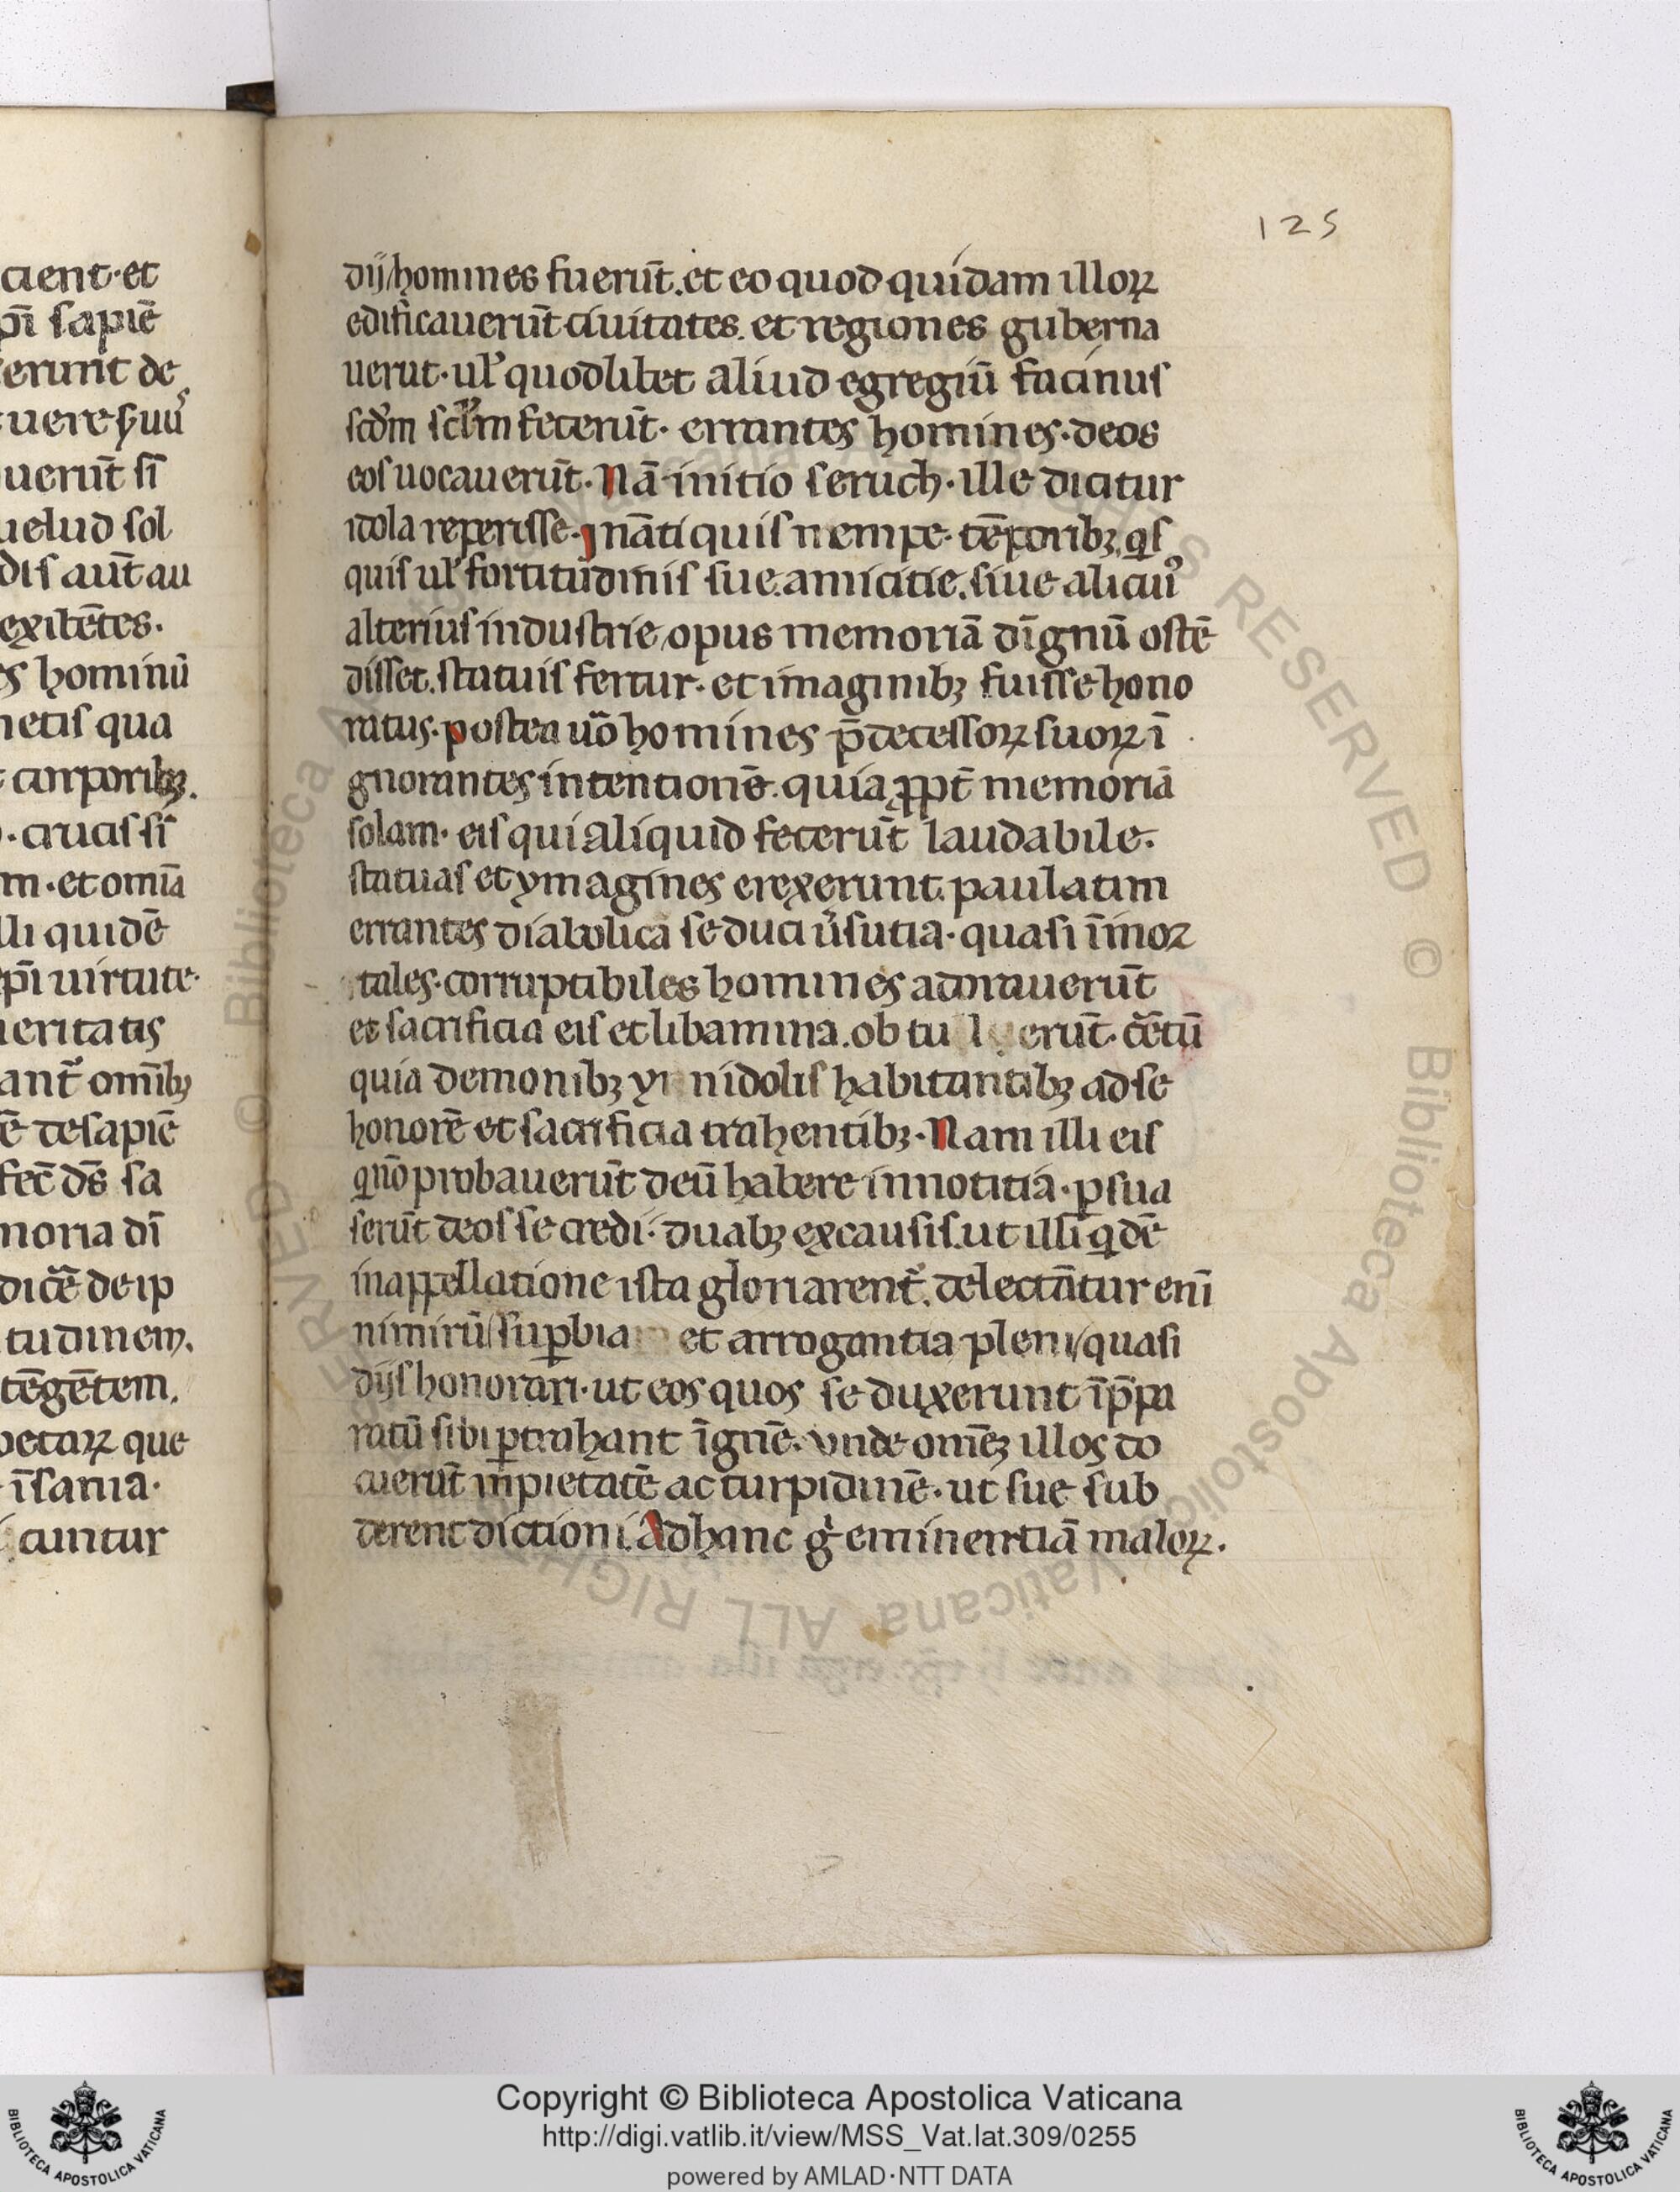 125
cient·et
pī sapiē
erunt de
uere suu᷒
uerūt sī
uelud sol
dis aūt au
exibētes.
hominū
netis qua
corporibꝫ.
·crucis si
m·et omīa
lli quidē
epī uirtute·
ueritatis
omībꝫ
ē desapiē
fec̄ ds̄ sa
moria dī
dicē̄ de ip
tudinem.
tēgētem.
petaꝝ que
īsania·
cuntur
dij/homines fuerūt.et eo quod quidam illoꝝ
edificauerūt ciuitates.et regiones guberna
uerut·ul' quodlibet aliud egregiū facinus
scd'm scl'm fecerūt· errantes homines·deos
eos uocauerūt·Nā·initio seruch·ille dicitur
idola reperisse·Jnāti quis nempe·tēporibꝫ q̄s
quis ul' fortitudinis sue.amicitie.siue alicui᷒
alterius industrie/opus memoriā dīgnū ostē
disset.statuis fertur·et imaginibꝫ fuisse hono
ratus·postea uō homines p̄decessoꝝ suoꝝ ī
gnorantes intentionē.quia ꝓpt̄ memoriā
solam·eis qui aliquid fecerūt laudabile·
statuas et ymagines erexerunt.paulatim
errantes diabolica seduci ūsutia·quasi īmoꝛ
tales·corruptibiles homines adorauerūt
et sacrificia eis et libamina.ob tu l erūt·cētū
quia demonibꝫ yn nidolis habitantibꝫ ad se
honorē et sacrificia trahentibꝫ·Nam illi eis
qn̄o probauerūt deū habere innotitia·ꝑsua
serūt deos se credi·duabꝫ ex causis.ut illi qͥdē
in appellatione ista gloriarent᷑.delectātur enī
nimirū/suꝑbia et arrogantia pleni/quasi
dijs honorari·ut eos quos se duxerunt īp̄pa
ratū sibi ꝑtrahant īgnē.vnde om̄ēꝫ illos do
cuerūt inpietatē ac turpidinē·ut sue sub
derent dictioni.Ad hanc gͥ eminentiā maloꝝ.
Copyright © Biblioteca Apostolica Vaticana
http://digi.vatlib.it/view/MSS_Vat.lat.309/0255
powered by AMLAD·NTT DATA
BIBLIOTECA APOSTOLICA VATICANA
BIBLIOTECA APOSTOLICA VATICANA